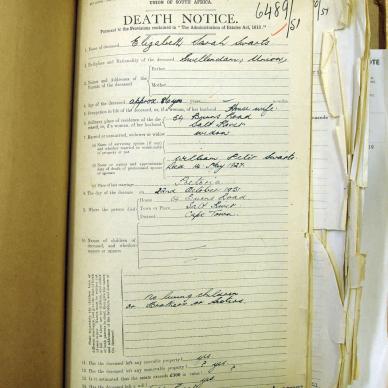 UNION OF SOUTH AFRICA.
6489/51
DEATH NOTICE.
Pursuant to the Provisions contained in "The Administration of Estates Act, 1913."
1. Name of deceased Elizabeth Sarah Swarts
2. Birthplace and Nationality of the deceased Swellendam, Union
3. Names and Addresses of the Parents of the deceased
Father
Mother
4. Age of the deceased approx.
5. Occupation in life of the deceased, or, if woman, of her husband House wife
6. Ordinary place of residence of the deceased, or, if a woman, of her husband
64 Burns Road
Salt River
7. Married or unmarried, widower or widow widow
(a) Name of surviving spouse (if any) and whether married in community of property or not
(b) Name or names and approximate date of death of predeceased spouse or spouses
William Peter Swarts
died 14 May 1927.
(c) Place of last marriage Pretoria
8. The day of the decease on 22nd October 1951
9. Where the person died
House 64 Burns Road
Town or Place Salt River
District Cape Town
10. Names of children of deceased, and whether majors or minors
No living children
or Brothers or Sisters.
11. Has the deceased left any movable property? yes
12. Has the deceased left any immovable property? yes
13. Is it estimated that the estate exceeds £300 in value? yes
14. Has the deceased left